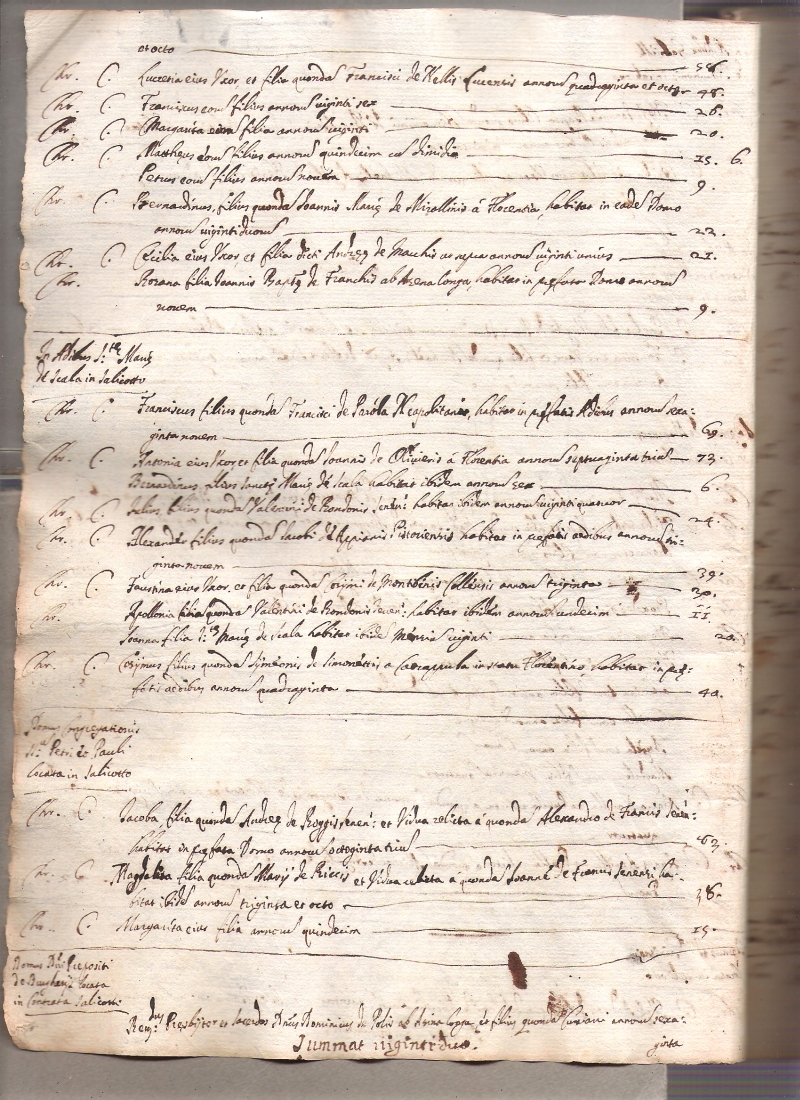 et octo 58.
Chr. C. Lucretia eius Uxor, et filia quondã Francisci de Nellis Lucensis annorũ quadraginta et octo 48.
Chr. C. Franciscus eorũ filius annorũ viginti sex 26.
Chr. C. Margarita eorũ filia annorũ viginti 20.
Chr. C. Mattheus eorũ filius annorũ quindecim cũ dimidio 15. 6.
Petrus eorũ filius annorũ novem 9.
Chr. C. Bernardinus filius quondã Joannis Marię de à Florentia, habitat in eadẽ Domo
annorũ viginti duorũ 22.
Chr. C. Cecilia eius Uxor, et filia dicti Andreę de annorũ viginti unius 21.
Chr. Rosana filia Joannis Baptę de Franchis ab habitat in pręfata Domo annorũ
novem 9.
In Ædibus S.tę Marię
de Scala in Salicotto
Chr. C. Franciscus filius quondã Francisci de Parola Neapolitanus, habitat in pręfatis Ædibus annorũ sexa-
ginta novem 69.
Chr. C. Antonia eius Uxor, et filia quondã Joannis de Olivieris à Florentia annorũ septuaginta triũ 73.
Bernardinus filius Sanctę Marię de Scala habitat ibidem annorũ sex 6.
Chr. C. filius quondã Valentini de Rondonis Senẽn: habitat ibidem annorũ viginti quatuor 24.
Chr. C. Alexander filius quondã Jacobi de habitat in pręfatis ædibus annorũ tri-
ginta novem 39.
Chr. C. Faustina eius Uxor, et filia quondã de annorũ triginta 30.
Chr. Apollonia filia quondã Valentini de Rondonis Senen: habitat ibidem annorũ undecim 11.
Joanna filia S.tę Marię de Scala habitat ibidẽ Mensiũ viginti 20.
Chr. C. filius quondã Symeonis de Simonettis a in statu Florentino, habitat in pręf:
fatis ædibus annorũ quadraginta 40.
Domus Congregationis
Petri et Pauli
locata in Salicotto
Chr. C. Jacoba filia quondã Andreę de Senen: et Vidua relicta à quondã Alexandro de Senẽn:
habitat in pręfata Domo annorũ octoginta triũ
Chr. C. Magdalena filia quondã Marij de Riccis et Vidua relicta à quondã Joanne de Senensi ha-
bitat ibidẽ annorũ triginta et octo 38.
Chr. C. Margarita eius filia annorũ quindecim 15.
Domus Dñi Prepositi
de locata
in Contrata Salicotti
Rev.dus Presbiter et Sacerdos Dñus Dominicus de filius quondã annorũ sexa-
ginta
Summat viginti duo.